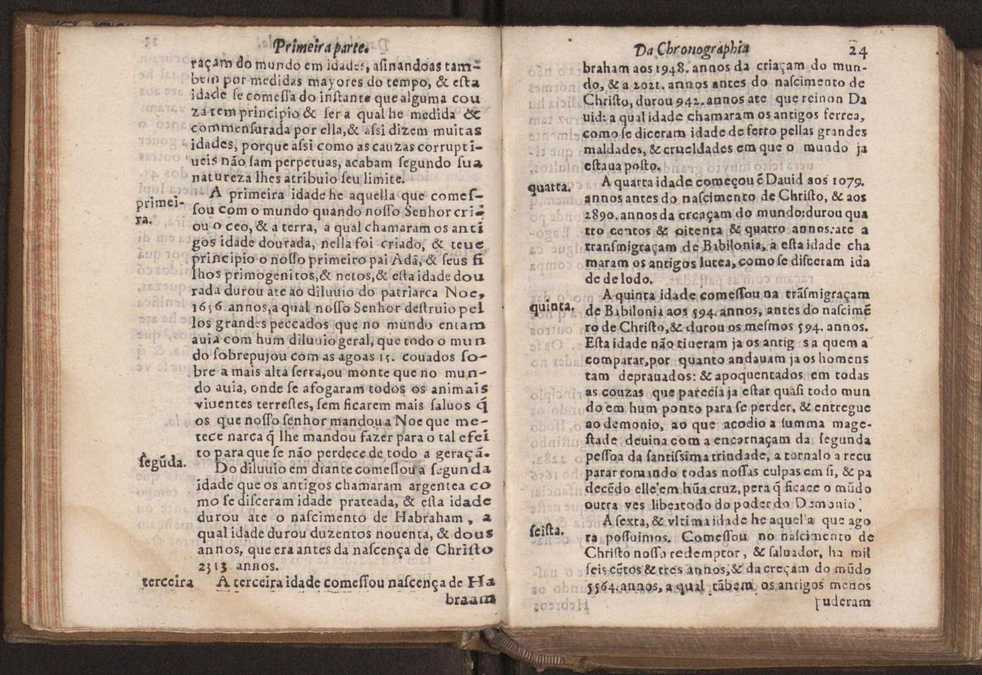 Primeira parte.
raçam do mundo em idades, asinandoas tam-
bem por medidas mayores do tempo, & esta
idade se comessa do instante que alguma cou
za tem principio & ser a qual he medida &
commensurada por ella, & assi dizem muitas
idades, porque assi como as cauzas corrupti-
ueis não sam perpetuas, acabam segundo sua
natureza lhes atribuio seu limite.
primei-
ra.
A primeira idade he aquella que comes-
sou com o mundo quando nosso Senhor cri-
ou o ceo, & a terra, a qual chamaram os anti
gos idade dourada, nella foi criado, & teue
principio o nosso primeiro pai Adã, & seus fi
lhos primogenitos, & netos, & esta idade dou
rada durou ate ao diluuio do patriarca Noe,
1656. annos, a qual nosso Senhor destruio pel
los grandes peccados que no mundo entam
auia com hum diluuio geral, que todo o mun
do sobrepujou com as agoas 15. couados so-
bre a mais alta serra, ou monte que no mun-
do auia, onde se afogaram todos os animais
viuentes terrestes, sem ficarem mais saluos q̃
os que nosso senhor mandou a Noe que me-
tece narca q̃ lhe mandou fazer para o tal efei
to para que se não perdece de todo a geraçã.
segũda.
Do diluuio em diante comessou a segunda
idade que os antigos chamaram argentea co
mo se disceram idade prateada, & esta idade
durou ate o nascimento de Habraham, a
qual idade durou duzentos nouenta, & dous
annos, que era antes da nascença de Christo
2313 annos.
terceira
A terceira idade comessou nascença de Ha
braam
Da Chronographia 24
braham aos 1948. annos da criaçam do mun-
do, & a 2021. annos antes do nascimento de
Christo, durou 942. annos ate que reinou Da
uid: a qual idade chamaram os antigos ferrea,
como se diceram idade de ferro pellas grandes
maldades, & crueldades em que o mundo ja
estaua posto.
quarta.
A quarta idade começou ẽ Dauid aos 1079.
annos antes do nascimento de Christo, & aos
2890. annos da creaçam do mundo: durou qua
tro centos & oitenta & quatro annos: ate a
transmigraçam de Babilonia, a esta idade cha
maram os antigos lutea, como se disceram ida
de de lodo.
quinta.
A quinta idade comessou na trãsmigraçam
de Babilonia aos 594. annos, antes do nascimẽ
to de Christo, & durou os mesmos 594. annos.
Esta idade não tiueram ja os antigos a quem a
comparar, por quanto andauam ja os homens
tam deprauados: & apoquentados em todas
as couzas que parecia ja estar quasi todo mun
do em hum ponto para se perder, & entregue
ao demonio, ao que acodio a summa mage-
stade deuina com a encarnaçam da segunda
pessoa da santissima trindade, a tornalo a recu
parar tomando todas nossas culpas em si, & pa
decẽdo elle em hũa cruz, pera q̃ ficace o mũdo
outra ves libertado do poder do Demonio.
seista.
A sexta, & vltima idade he aquella que ago
ra possoimos. Comessou no nascimento de
Christo nosso redemptor, & saluador, ha mil
seis cẽtos & tres annos, & da creçam do mũdo
5564. annos, a qual tãbem os antigos menos
puderam